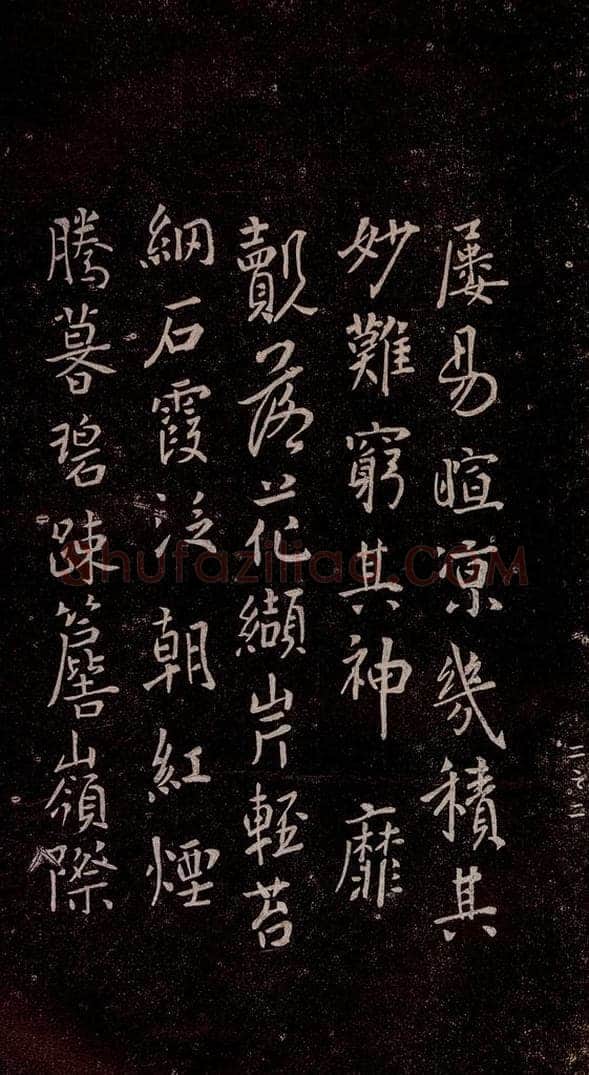 屢易暄凉幾積其
妙難窮其神靡
覿落花纈岸輕苔
網石霞泛朝紅煙
騰暮碧踈簷嶺際
Shufaziliao.COM